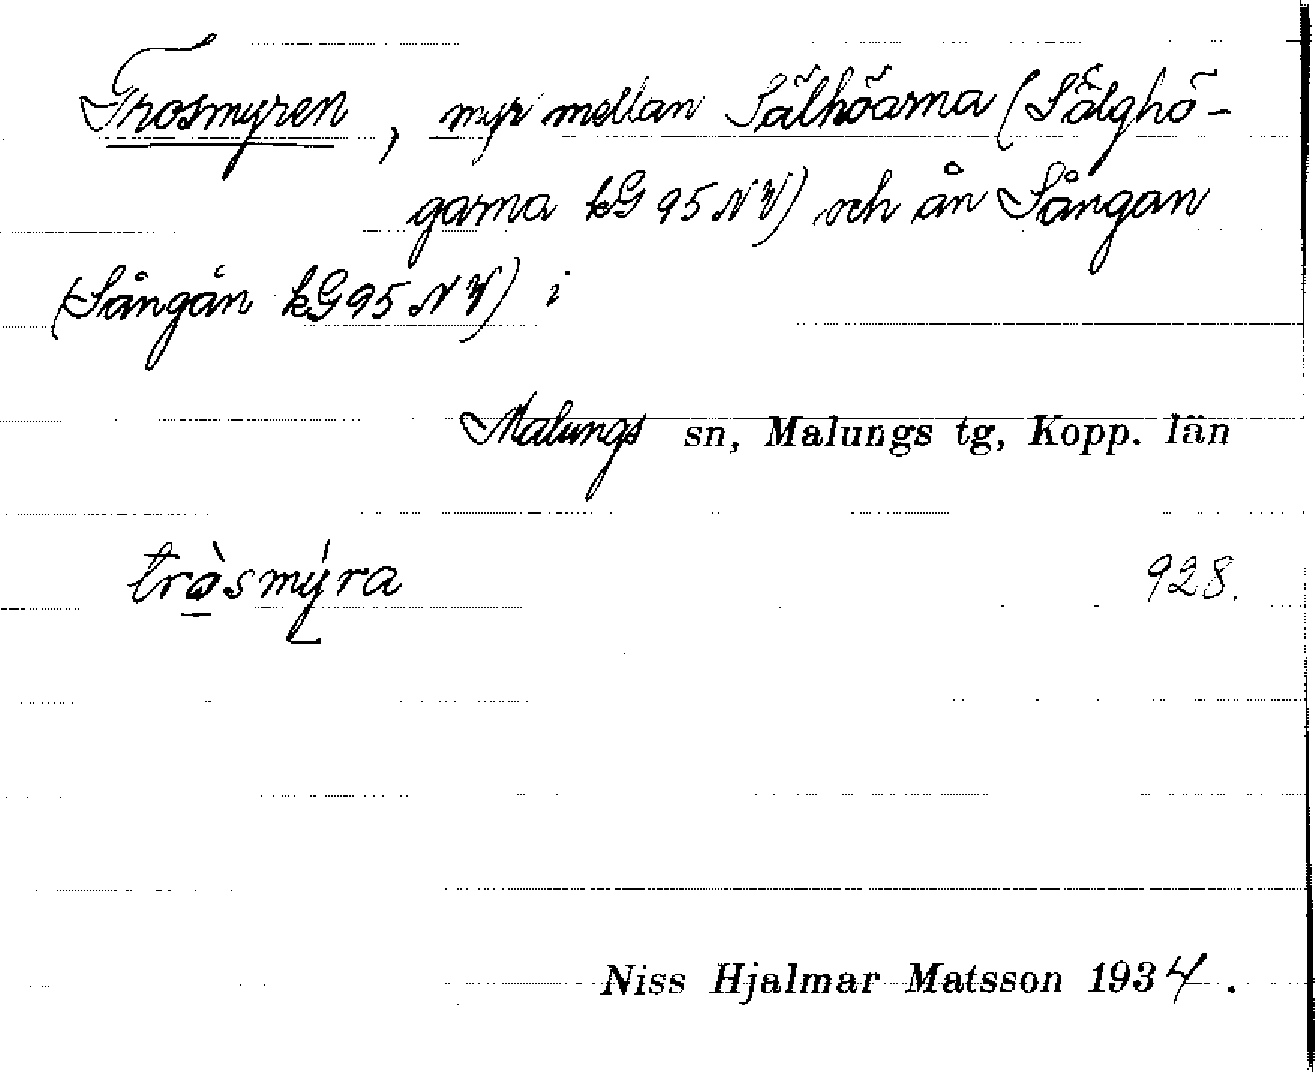 Trosmyren, myr mellan Sälhöarna (Sälghö-
garna kG 95 NV) och ån Sångan
(Sångån kG 95 NV) i
Malungs sn, Malungs tg, Kopp. län
tròsmýra 928.
Niss Hjalmar Matsson 1934.